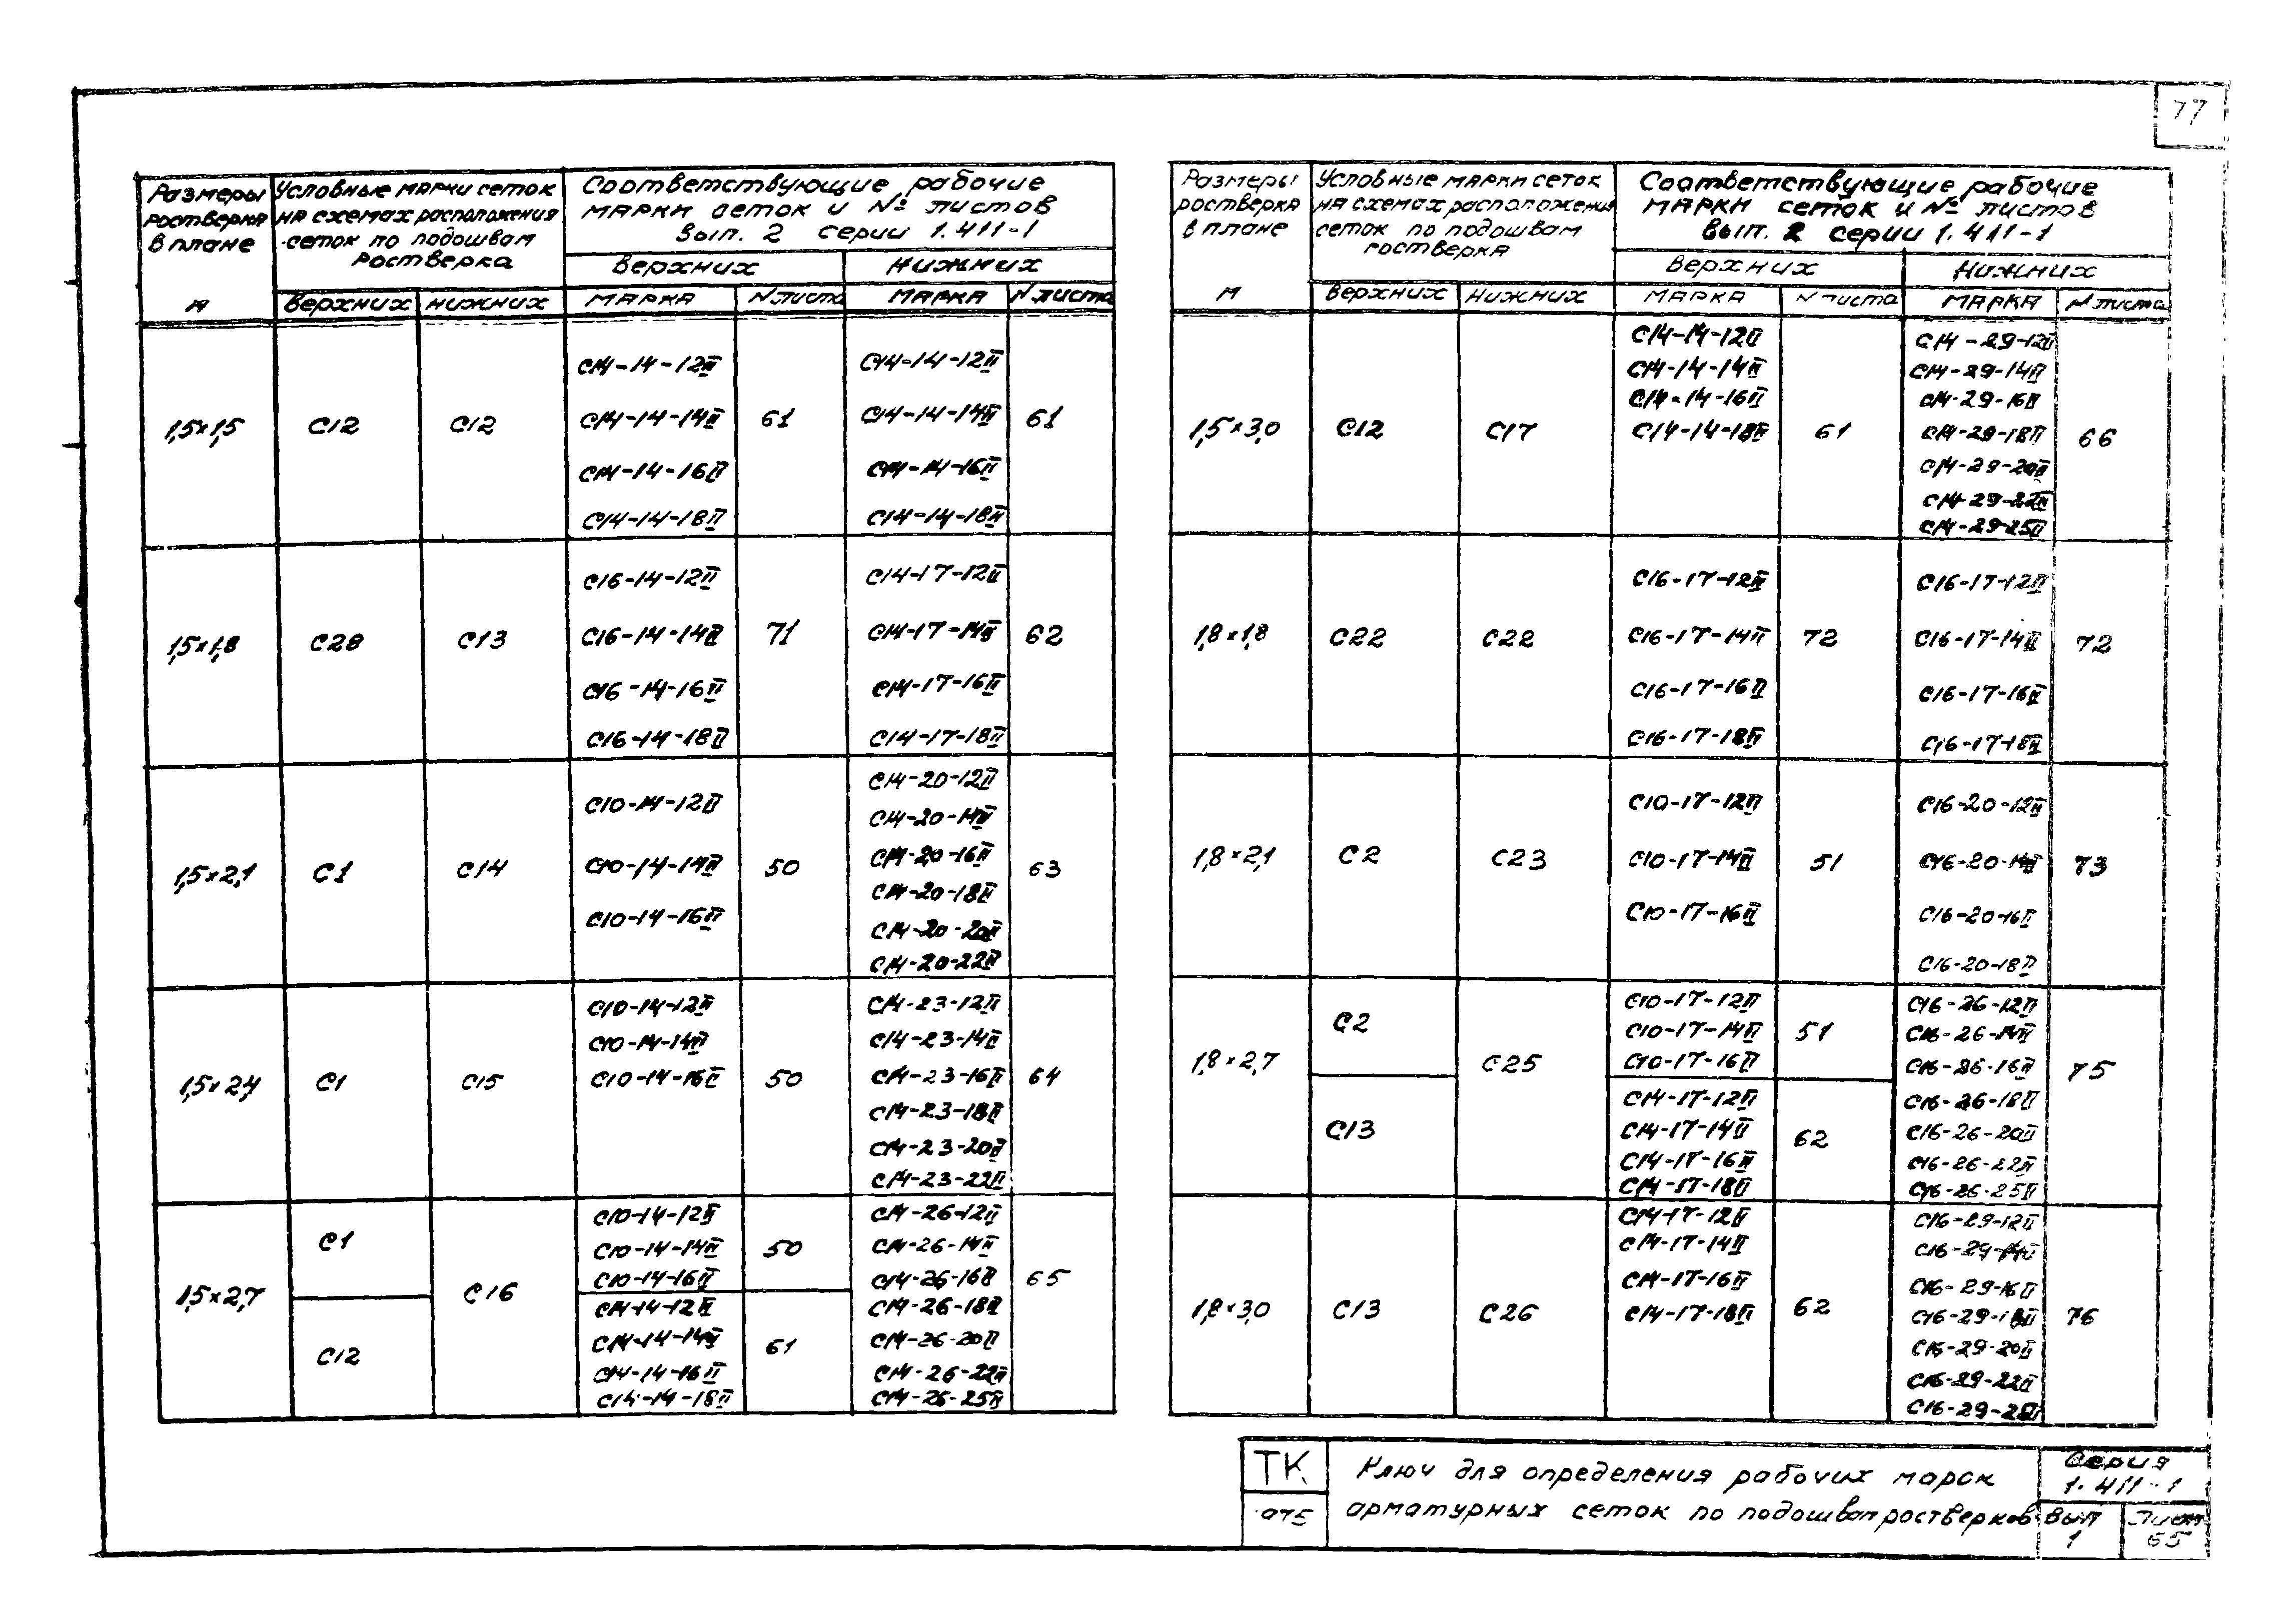 77
Размеры ростверка в плане м
Условные марки сеток на схемах расположения сеток по подошвам ростверка
Соответствующие рабочие марки сеток и № листов вып. 2 серии 1.411-1
верхних нижних
верхних нижних марка N листа марка N листа
1,5×1,5 С12 С12 61 61
С14-14-12II С14-14-12II
С14-14-14II С14-14-14II
С14-14-16II С14-14-16II
С14-14-18II С14-14-18II
1,5×1,8 С28 С13 71 62
С16-14-12II С14-17-12II
С16-14-14II С14-17-14II
С16-14-16II С14-17-16II
С16-14-18II С14-17-18II
1,5×2,1 С1 С14 50 63
С10-14-12II С14-20-12II
С10-14-14II С14-20-14II
С10-14-16II С14-20-16II
С14-20-18II
С14-20-20II
С14-20-22II
1,5×2,4 С1 С15 50 64
С10-14-12II С14-23-12II
С10-14-14II С14-23-14II
С10-14-16II С14-23-16II
С14-23-18II
С14-23-20II
С14-23-22II
1,5×2,7 С1 С16 50 65
С10-14-12II С14-26-12II
С10-14-14II С14-26-14II
С10-14-16II С14-26-16II
С12 61
С14-14-12II С14-26-18II
С14-14-14II С14-26-20II
С14-14-16II С14-26-22II
С14-14-18II С14-26-25II
Размеры ростверка в плане м
Условные марки сеток на схемах расположения сеток по подошвам ростверка
Соответствующие рабочие марки сеток и № листов вып. 2 серии 1.411-1
верхних нижних
верхних нижних марка N листа марка N листа
1,5×3,0 С12 С17 61 66
С14-14-12II С14-29-12II
С14-14-14II С14-29-14II
С14-14-16II С14-29-16II
С14-14-18II С14-29-18II
С14-29-20II
С14-29-22II
С14-29-25II
1,8×1,8 С22 С22 72 72
С16-17-12II С16-17-12II
С16-17-14II С16-17-14II
С16-17-16II С16-17-16II
С16-17-18II С16-17-18II
1,8×2,1 С2 С23 51 73
С10-17-12II С16-20-12II
С10-17-14II С16-20-14II
С10-17-16II С16-20-16II
С16-20-18II
1,8×2,7 С2 С25 51 75
С10-17-12II С16-26-12II
С10-17-14II С16-26-14II
С10-17-16II С16-26-16II
С13 62
С14-17-12II С16-26-18II
С14-17-14II С16-26-20II
С14-17-16II С16-26-22II
С14-17-18II С16-26-25II
1,8×3,0 С13 С26 62 76
С14-17-12II С16-29-12II
С14-17-14II С16-29-14II
С14-17-16II С16-29-16II
С14-17-18II С16-29-18II
С16-29-20II
С16-29-22II
ТК
Ключ для определения рабочих марок
арматурных сеток по подошвам ростверков
Серия
1.411-1
Вып
1
Лист
65